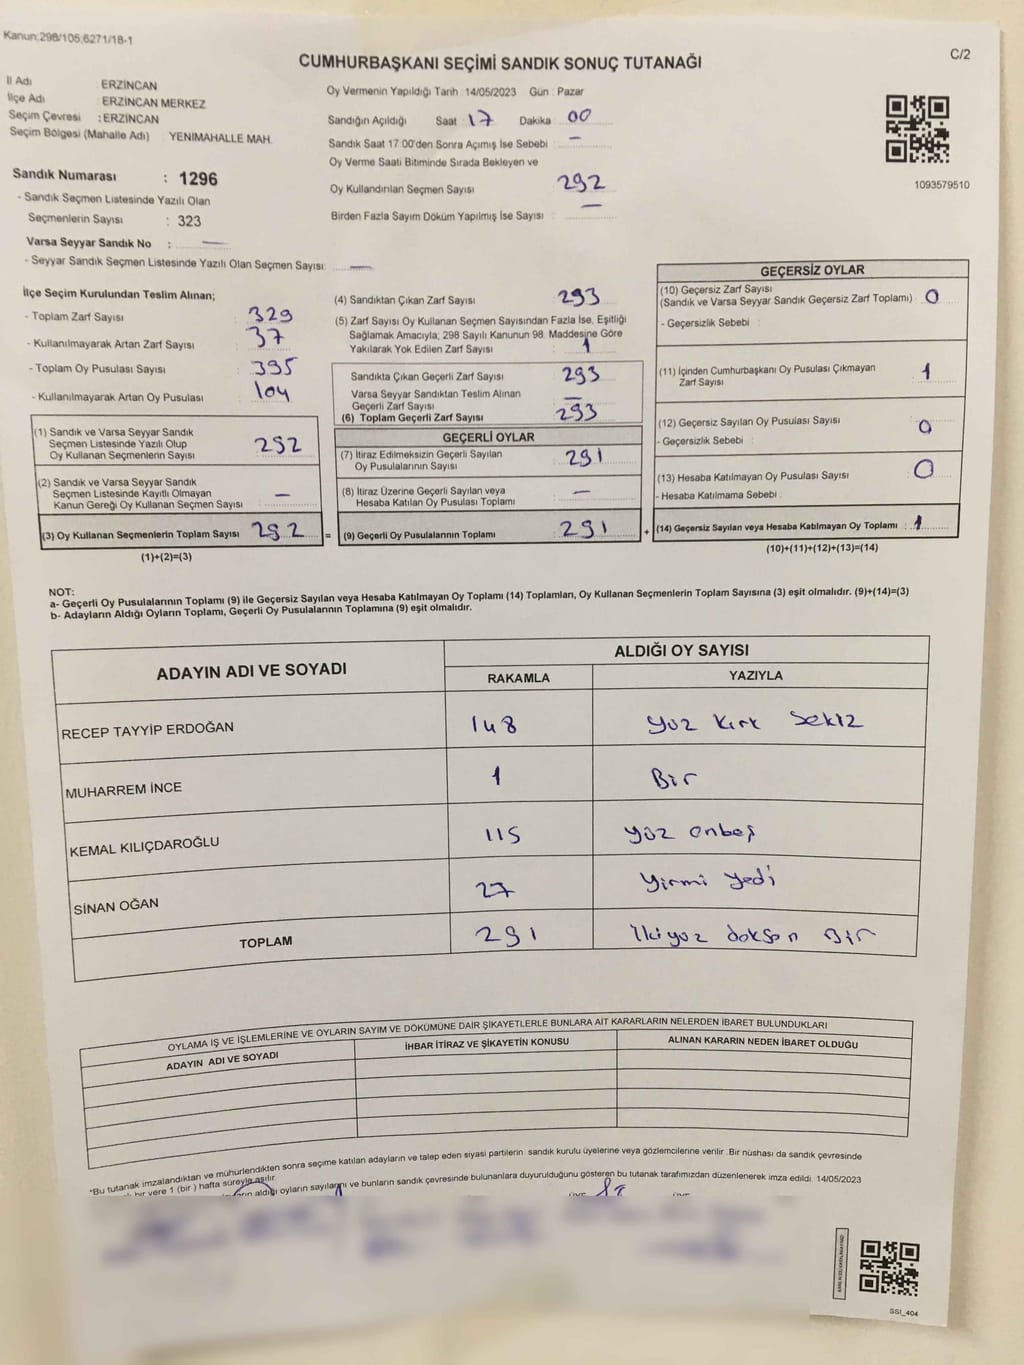 Kanun:298/105;6271/18-1
C/2
CUMHURBAŞKANI SEÇİMİ SANDIK SONUÇ TUTANAĞI
İl Adı : ERZİNCAN
İlçe Adı : ERZİNCAN MERKEZ
Seçim Çevresi : ERZİNCAN
Seçim Bölgesi (Mahalle Adı) : YENIMAHALLE MAH.
Sandık Numarası : 1296
- Sandık Seçmen Listesinde Yazılı Olan
Seçmenlerin Sayısı : 323
Varsa Seyyar Sandık No : —
- Seyyar Sandık Seçmen Listesinde Yazılı Olan Seçmen Sayısı: —
Oy Vermenin Yapıldığı Tarih : 14/05/2023 Gün : Pazar
Sandığın Açıldığı Saat : 17 Dakika : 00
Sandık Saat 17:00'den Sonra Açımış İse Sebebi : —
Oy Verme Saati Bitiminde Sırada Bekleyen ve
Oy Kullandırılan Seçmen Sayısı : 292
Birden Fazla Sayım Döküm Yapılmış İse Sayısı : —
1093579510
İlçe Seçim Kurulundan Teslim Alınan;
- Toplam Zarf Sayısı : 329
- Kullanılmayarak Artan Zarf Sayısı : 37
- Toplam Oy Pusulası Sayısı : 395
- Kullanılmayarak Artan Oy Pusulası : 104
(1) Sandık ve Varsa Seyyar Sandık
Seçmen Listesinde Yazılı Olup
Oy Kullanan Seçmenlerin Sayısı : 292
(2) Sandık ve Varsa Seyyar Sandık
Seçmen Listesinde Kayıtlı Olmayan
Kanun Gereği Oy Kullanan Seçmen Sayısı : —
(3) Oy Kullanan Seçmenlerin Toplam Sayısı : 292
(1)+(2)=(3)
(4) Sandıktan Çıkan Zarf Sayısı : 293
(5) Zarf Sayısı Oy Kullanan Seçmen Sayısından Fazla İse, Eşitliği
Sağlamak Amacıyla; 298 Sayılı Kanunun 98. Maddesine Göre
Yakılarak Yok Edilen Zarf Sayısı : 1
Sandıkta Çıkan Geçerli Zarf Sayısı : 293
Varsa Seyyar Sandıktan Teslim Alınan
Geçerli Zarf Sayısı : —
(6) Toplam Geçerli Zarf Sayısı : 293
GEÇERLİ OYLAR
(7) İtiraz Edilmeksizin Geçerli Sayılan
Oy Pusulalarının Sayısı : 291
(8) İtiraz Üzerine Geçerli Sayılan veya
Hesaba Katılan Oy Pusulası Toplamı : —
= (9) Geçerli Oy Pusulalarının Toplamı : 291 +
GEÇERSİZ OYLAR
(10) Geçersiz Zarf Sayısı
(Sandık ve Varsa Seyyar Sandık Geçersiz Zarf Toplamı) : 0
- Geçersizlik Sebebi :
(11) İçinden Cumhurbaşkanı Oy Pusulası Çıkmayan
Zarf Sayısı : 1
(12) Geçersiz Sayılan Oy Pusulası Sayısı : 0
- Geçersizlik Sebebi :
(13) Hesaba Katılmayan Oy Pusulası Sayısı : 0
- Hesaba Katılmama Sebebi :
(14) Geçersiz Sayılan veya Hesaba Katılmayan Oy Toplamı : 1
(10)+(11)+(12)+(13)=(14)
NOT:
a- Geçerli Oy Pusulalarının Toplamı (9) ile Geçersiz Sayılan veya Hesaba Katılmayan Oy Toplamı (14) Toplamları, Oy Kullanan Seçmenlerin Toplam Sayısına (3) eşit olmalıdır. (9)+(14)=(3)
b- Adayların Aldığı Oyların Toplamı, Geçerli Oy Pusulalarının Toplamına (9) eşit olmalıdır.
ADAYIN ADI VE SOYADI
ALDIĞI OY SAYISI
RAKAMLA YAZIYLA
RECEP TAYYİP ERDOĞAN 148 yüz kırk sekiz
MUHARREM İNCE 1 Bir
KEMAL KILIÇDAROĞLU 115 yüz onbeş
SİNAN OĞAN 27 yirmi yedi
TOPLAM 291 ikiyüz doksan Bir
OYLAMA İŞ VE İŞLEMLERİNE VE OYLARIN SAYIM VE DÖKÜMÜNE DAİR ŞİKAYETLERLE BUNLARA AİT KARARLARIN NELERDEN İBARET BULUNDUKLARI
ADAYIN ADI VE SOYADI İHBAR İTİRAZ VE ŞİKAYETİN KONUSU ALINAN KARARIN NEDEN İBARET OLDUĞU
*Bu tutanak imzalandıktan ve mühürlendikten sonra seçime katılan adayların ve talep eden siyasi partilerin sandık kurulu üyelerine veya gözlemcilerine verilir. Bir nüshası da sandık çevresinde
bir yere 1 (bir) hafta süreyle asılır.
aldığı oyların sayılarını ve bunların sandık çevresinde bulunanlara duyurulduğunu gösteren bu tutanak tarafımızdan düzenlenerek imza edildi. 14/05/2023
SSI_404